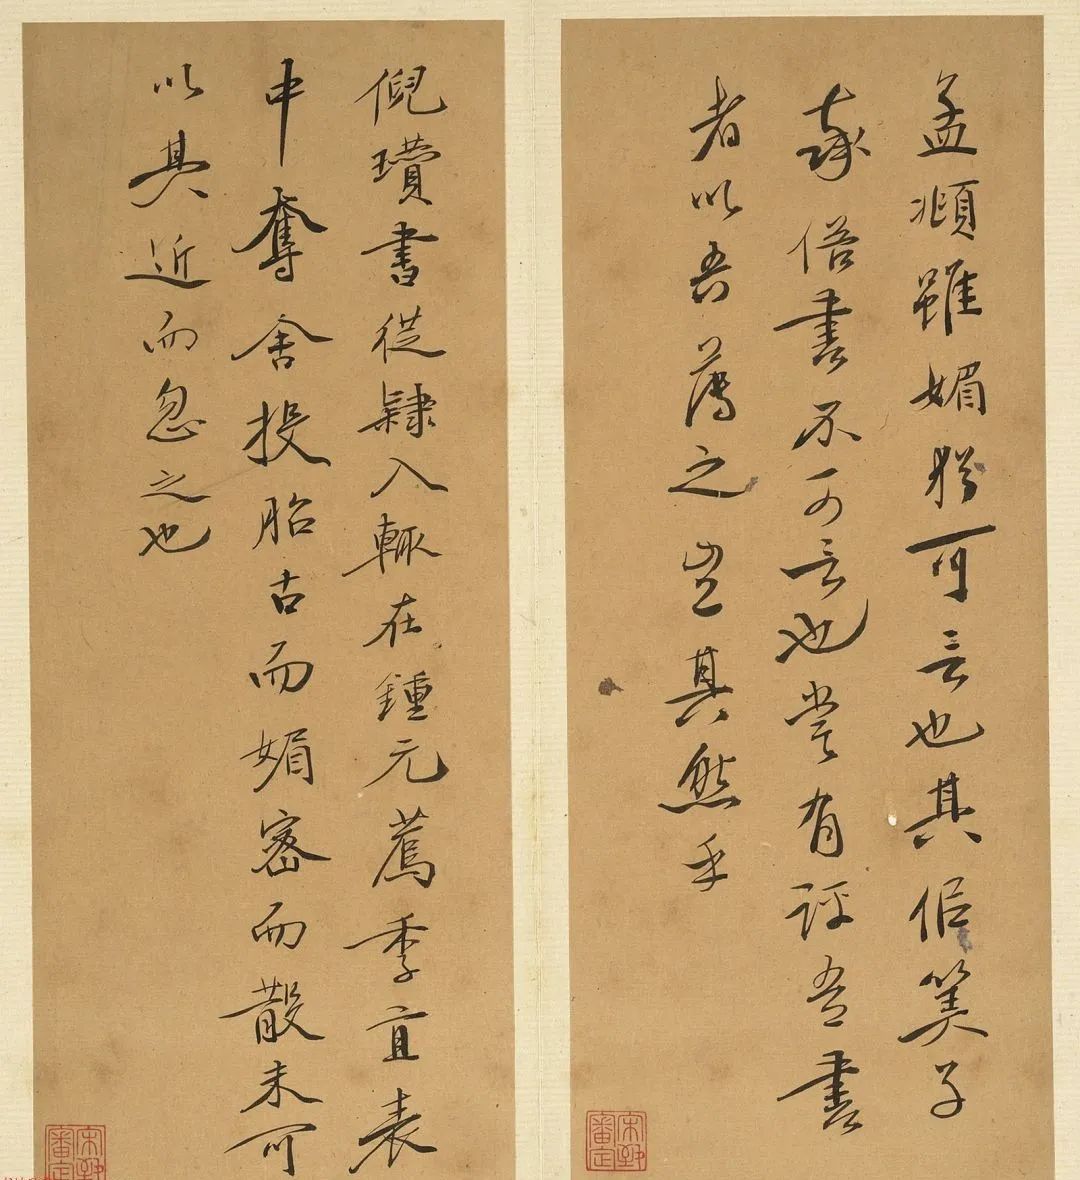 孟頫雖媚猶可言也其佀筭子
率俗書不可言也嘗有評吾書
者以吾薄之豈其然乎
倪瓚書從隸入輒在鍾元薦季直表
中奪舍投胎古而媚密而散未可
以其近而忽之也
審定
審定